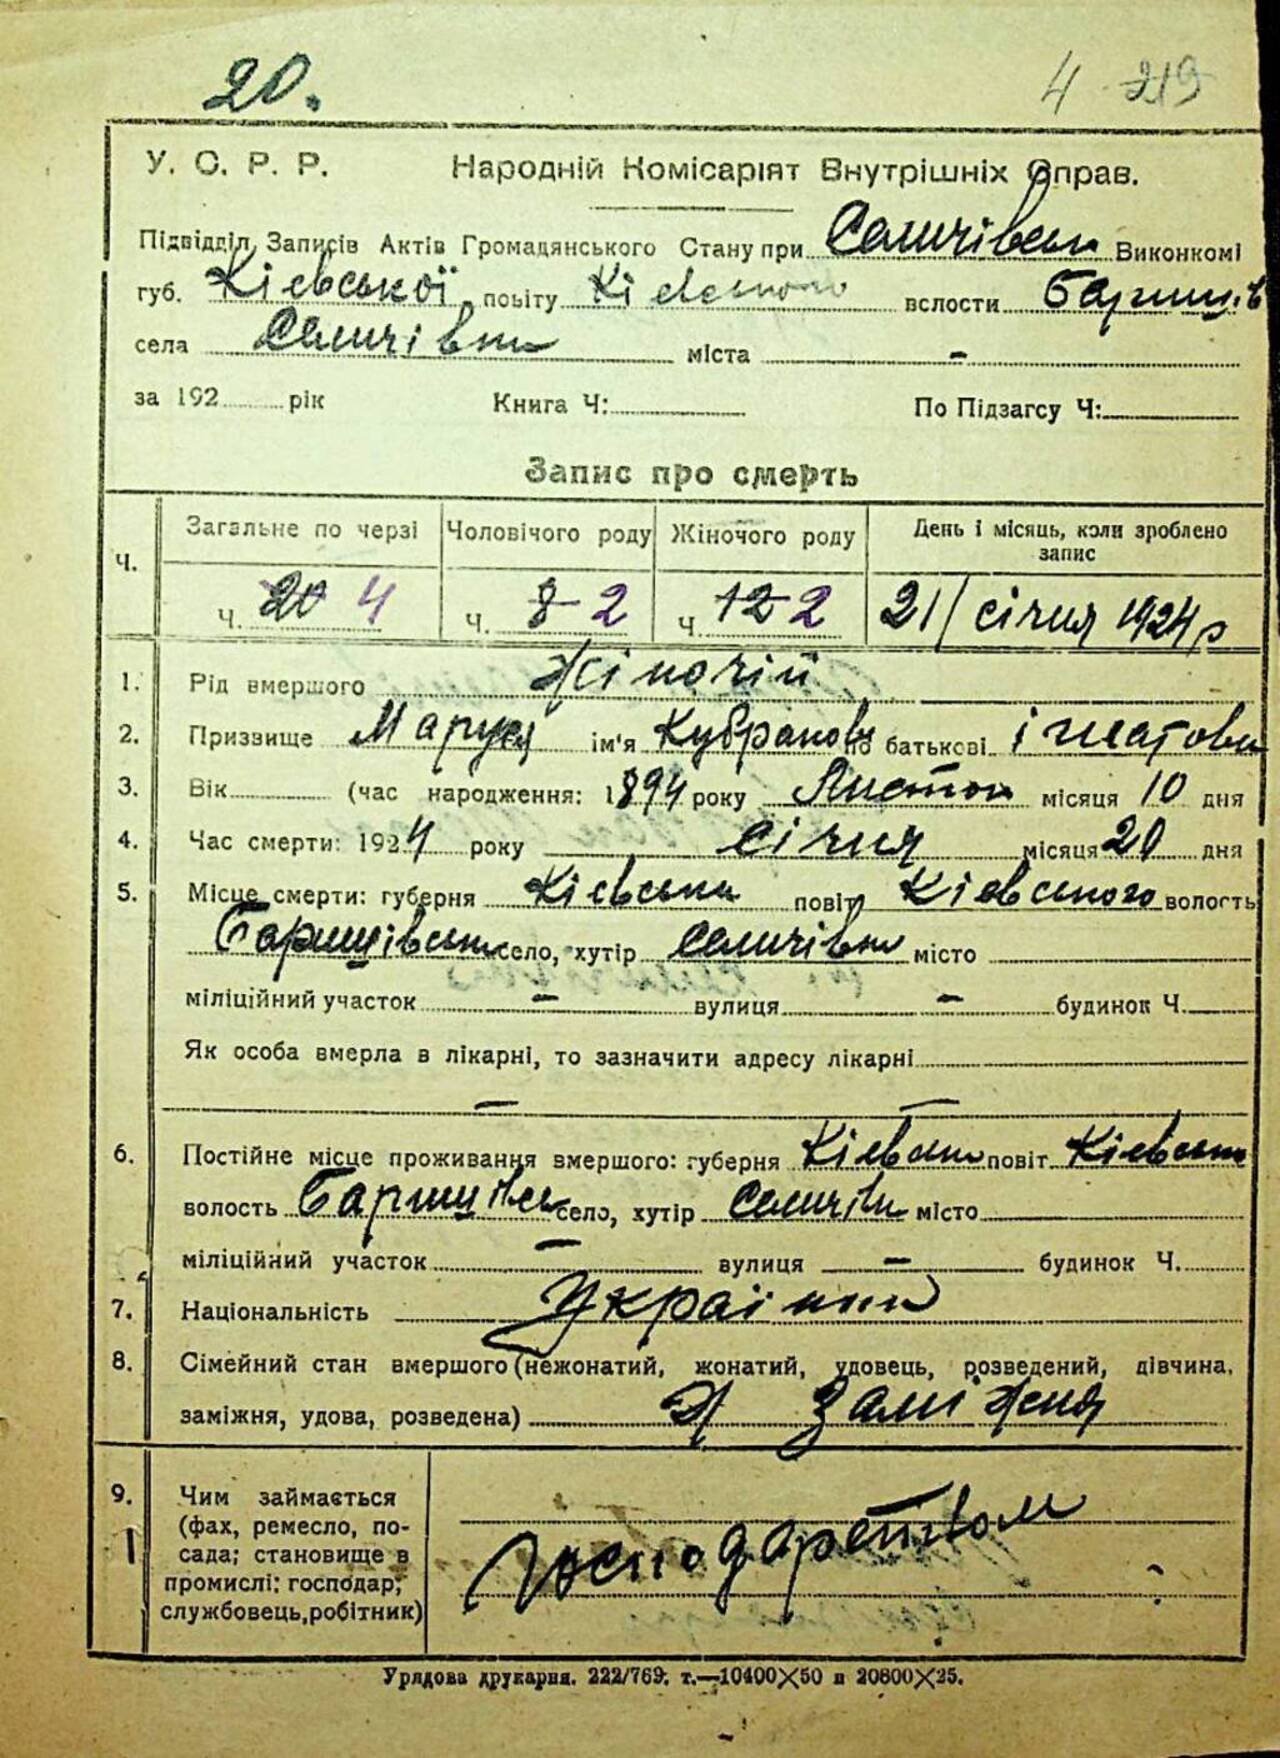 20. 4 219
У. С. Р. Р. Народній Комісаріят Внутрішніх Справ.
Підвідділ Записів Актів Громадянського Стану при Селичівськ Виконкомі
губ. Кієвської повіту Кієвського волости Баришів
села Селичівки міста -
за 192 рік Книга Ч: По Підзагсу Ч:
Запис про смерть
Ч. Загальне по черзі Чоловічого роду Жіночого роду День і місяць, коли зроблено запис
ч. 20 4 ч. 8 2 ч. 12 2 21/ січня 1924 р
1. Рід вмершого Жіночій
2. Призвище Маруся ім'я Кубракова по батькові Ігнатова
3. Вік (час народження: 1894 року Листоп місяця 10 дня
4. Час смерти: 1924 року січня місяця 20 дня
5. Місце смерти: губерня Кієвська повіт Кієвського волость
Баришівськ село, хутір Селичівка місто
міліційний участок - вулиця - будинок Ч.
Як особа вмерла в лікарні, то зазначити адресу лікарні
- -
6. Постійне місце проживання вмершого: губерня Кієвськ повіт Кієвськ
волость Баришівсь село, хутір Селичівк місто
міліційний участок - вулиця - будинок Ч.
7. Національність Українка
8. Сімейний стан вмершого (нежонатий, жонатий, удовець, розведений, дівчина,
заміжня, удова, розведена) Заміжня
9. Чим займається
(фах, ремесло, по-
сада; становище в
промислі; господар;
службовець, робітник)
Господарством
Урядова друкарня. 222/769. т.—10400×50 и 20800×25.